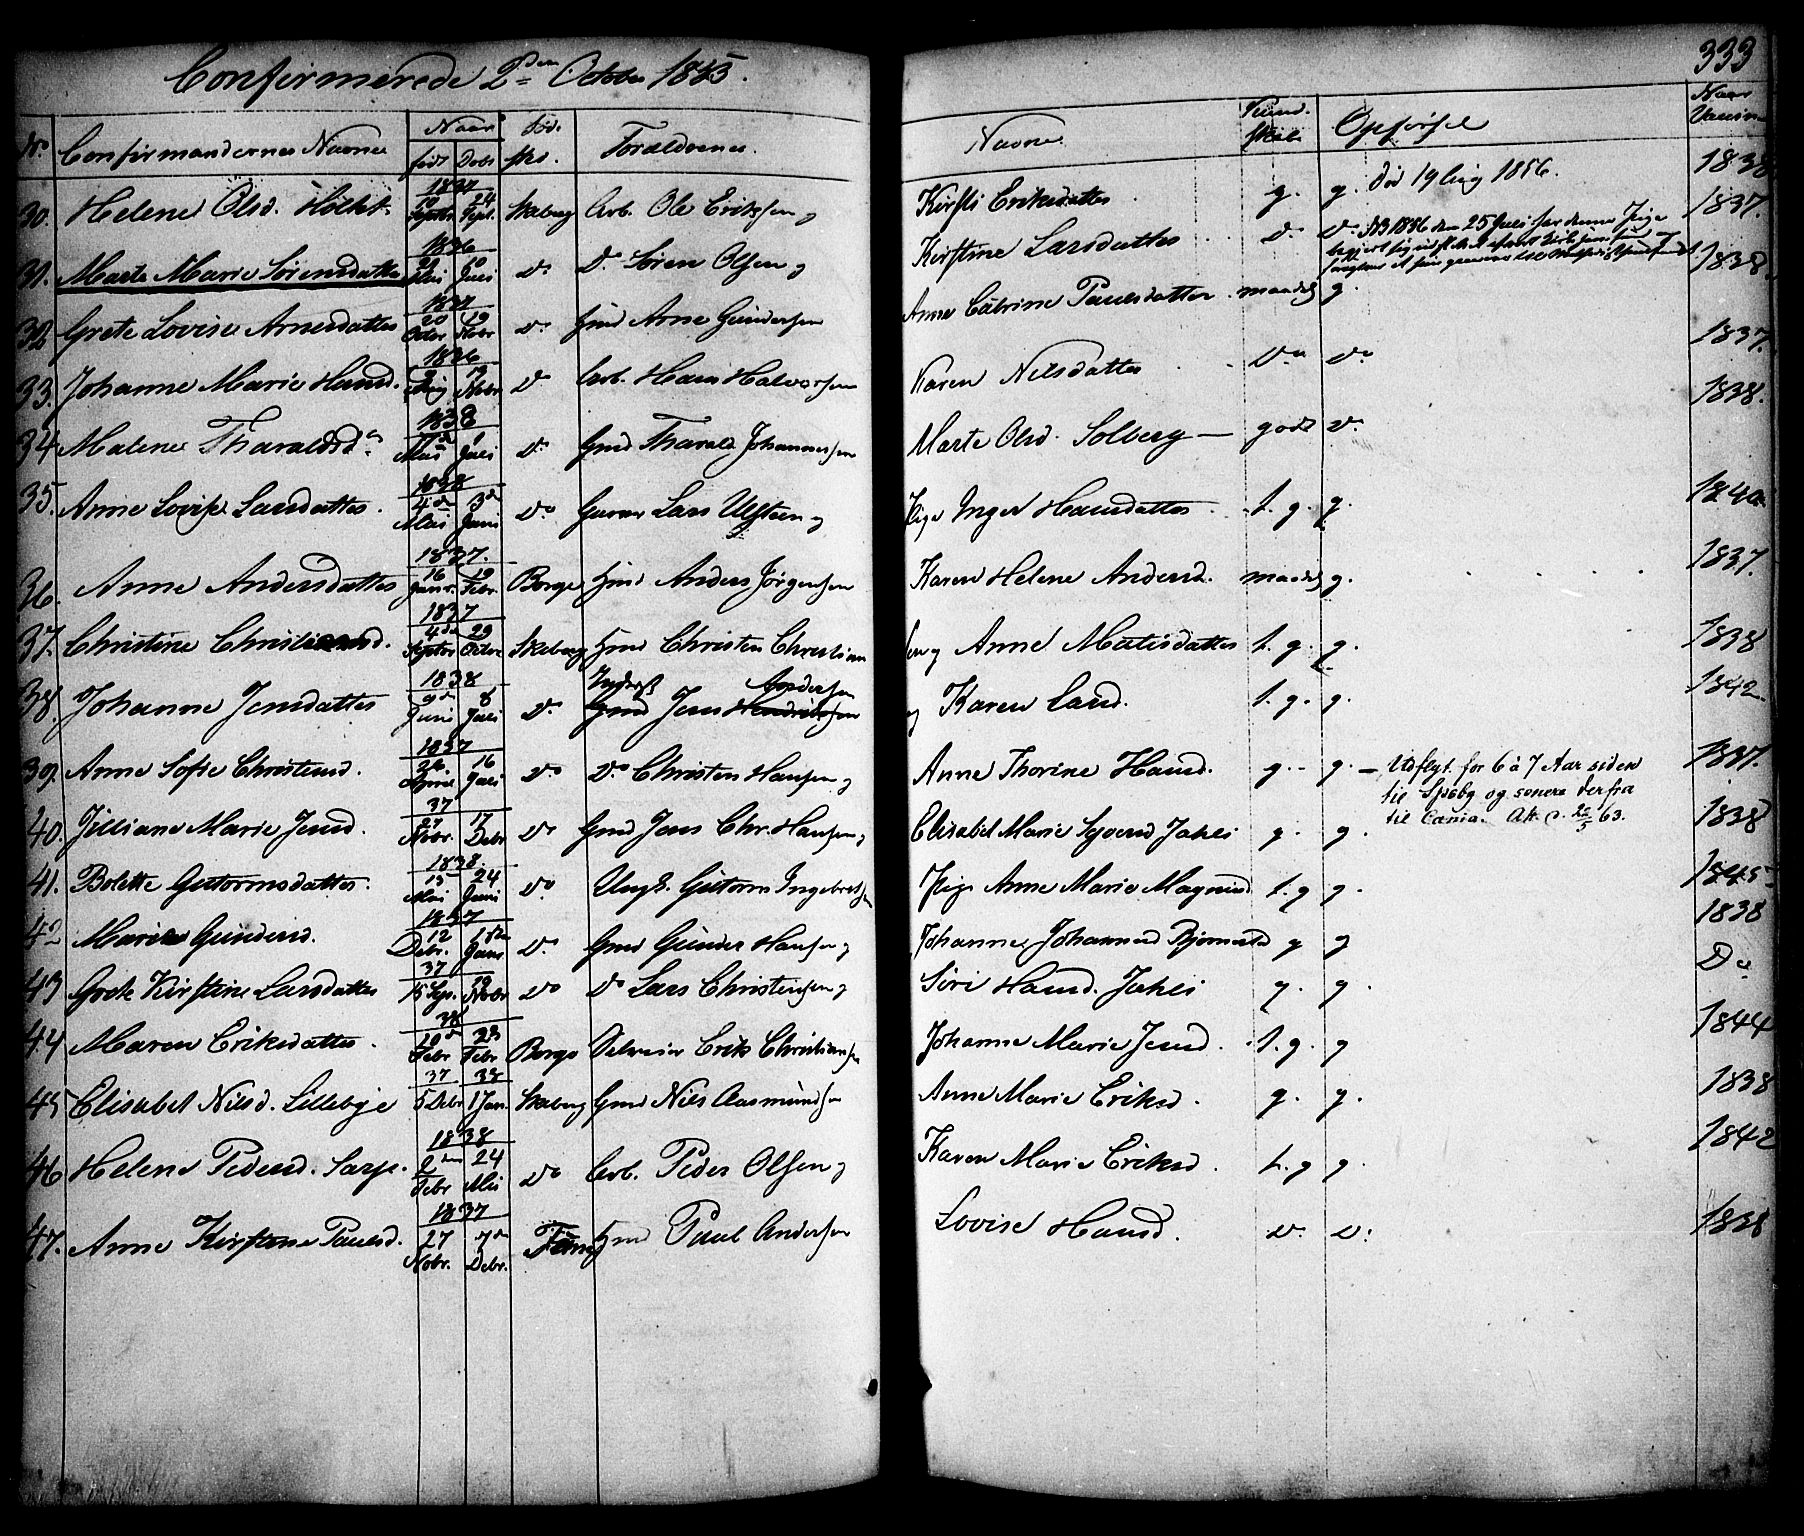 333
Confirmerede 2den October 1853.
No. Confirmandernes Navne Naar født Døbt Fød. sted. Forældrenes Navne Kund- skab Opførsel Naar Vaccin
30. Helene Olsd. 1837 10 Septbr. 24 Sept. Skeberg Arb. Ole Eriksen og Kirsti Eriksdatter g. g. død 19 Aug 1856. 1838
31. Marte Marie Sørensdatter 1836 Mai 10 Juli Do Do Søren Olsen og Kirstine Larsdatter Do Do 1856 den 25 Juli har denne Pige 1837.
32 Grete Lovise Arnesdatter 1837 20 Octbr 19 Nobr Do Hmd Arne Gundersen Anne Catrine Paulsdatter maadelg g. 1838.
33. Johanne Marie Hansd. 1836 Aug 13 Nobr. Do Arb. Hans Halvorsen Karen Nilsdatter Do Do 1837.
34 Malene Tharaldsdr 1838 Mai Juli Do Gmd Tharald Johannessen Marte Olsd. Solberg — godt Do 1838.
35. Anne Lovise Larsdatter. 1838 4de Mai 3de Juni Do Lars Ulsteen og Pige Inger Hansdatter t. g. g. 1840
36. Anne Andersdatter 1837. 16 Janr. 19 Febr. Borge Hmd Anders Jørgensen Karen Helene Andersd. maadelg g. 1837.
37. Christine Christensd. 1837 4de Septbr 29 Octbr Skeberg Hmd Christen Christiansen og Anne Matisdatter t. g. g. 1838
38. Johanne Jensdatter 1838 9de Juni 8 Juli Do Inderst Jens Andersen og Karen Larsd. t. g. g. 1842.
39. Anne Sofie Christensd. 1837 26 April 16 Juli Do Do Christen Hansen og Anne Thorine Hansd. g. g. — Udflyt. for 6 à 7 Aar siden 1837.
til Spsbg og senere derfra
til Cania. Ak. d. 26/5 63.
40. Jilliane Marie Jensd. 37 27 Nobr. 17 Debr Do Gmd Jens Chr. Hansen og Elisabet Marie Syversd Jahli g. g. 1838
41. Bolette Gutormsdatter. 1838. 13 Mai 24 Juni Do Ungk. Gutorm Ingebretsen Pige Anne Marie Magnusd. t. g g. 1845
42 Marie Gundersd. 1837 12 Debr. Janr Do Gmd Gunder Hansen og Johanne Johannesd Bjørnestd g g 1838
43 Grete Kirstine Larsdatter 37 15 Sep. 19 Nobr Do Do Lars Christensen og Siri Hansd. Jahli g. g. Do
44 Maren Eriksdatter. 38 10de Febr 25 Febr Borge Erik Christiansen Johanne Marie Jensd. t. g. g 1844
45 Elisabet Nilsd. Lillebye 37 5 Debr 38 1 Jan. Skeberg Gmd Nils Aasmundsen Anne Marie Eriksd. g. g. 1838
46 Helene Pedersd. Sarp. 1838 2den Febr 24 Mai Do Arb. Peder Olsen og Karen Marie Eriksd. t. g g. 1842
47. Anne Kirstine Paulsd. 1837 27 Nobr. 7de Debr. Hmd Paul Andersen Lovise Hansd. Do Do 1838